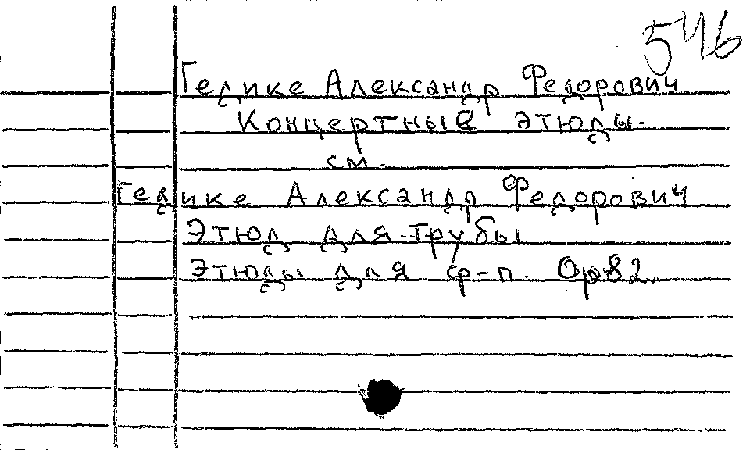 546
Гедике Александр Федорович
Концертные этюды.
см.
Гедике Александр Федорович
Этюд для трубы
Этюды для ф-п. Op82.